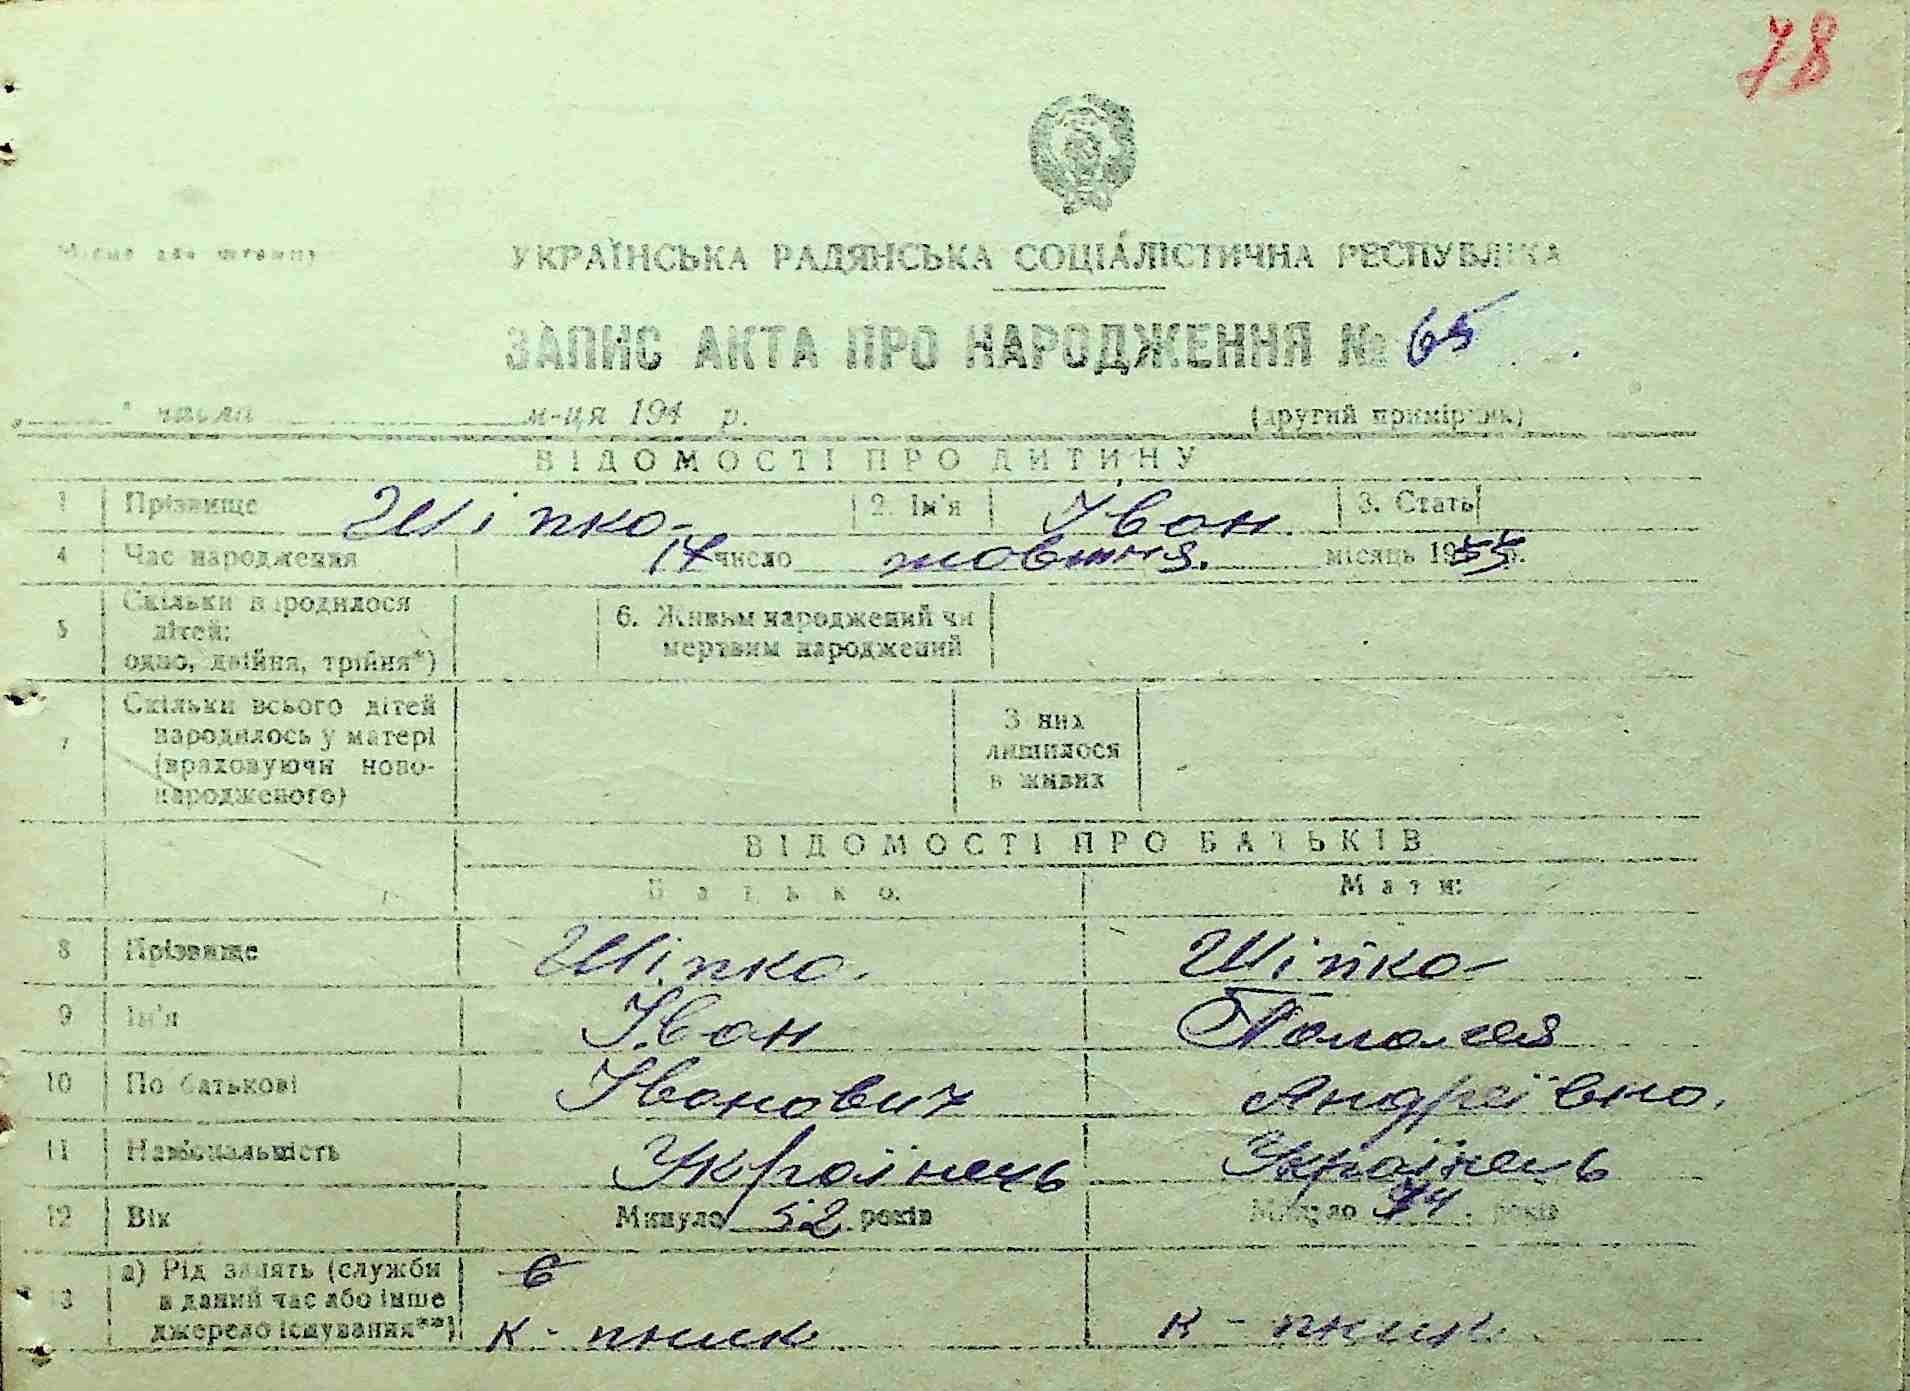 78
Місце для штампу
УКРАЇНСЬКА РАДЯНСЬКА СОЦІАЛІСТИЧНА РЕСПУБЛІКА
ЗАПИС АКТА ПРО НАРОДЖЕННЯ № 65
„ " числа м-ця 194 р. (другий примірник)
ВІДОМОСТІ ПРО ДИТИНУ
1 Прізвище Шіпко 2. Ім'я Іван 3. Стать
4 Час народження 17 число жовтня. місяць 1955 р.
Скільки народилося
5 дітей:
одно, двійня, трійня*)
6. Живим народжений чи
мертвим народжений
Скільки всього дітей
7 народилось у матері
(враховуючи ново-
народженого)
З них
лишилося
в живих
ВІДОМОСТІ ПРО БАТЬКІВ
Батько: Мати:
8 Прізвище Шіпко. Шіпко
9 Ім'я Іван
10 По батькові Іванович Андреївна.
11 Національність Українець Українець
12 Вік Минуло 52 років Минуло років
а) Рід занять (служби
13 в даний час або інше
джерело існування**)
к - пник к - пник.